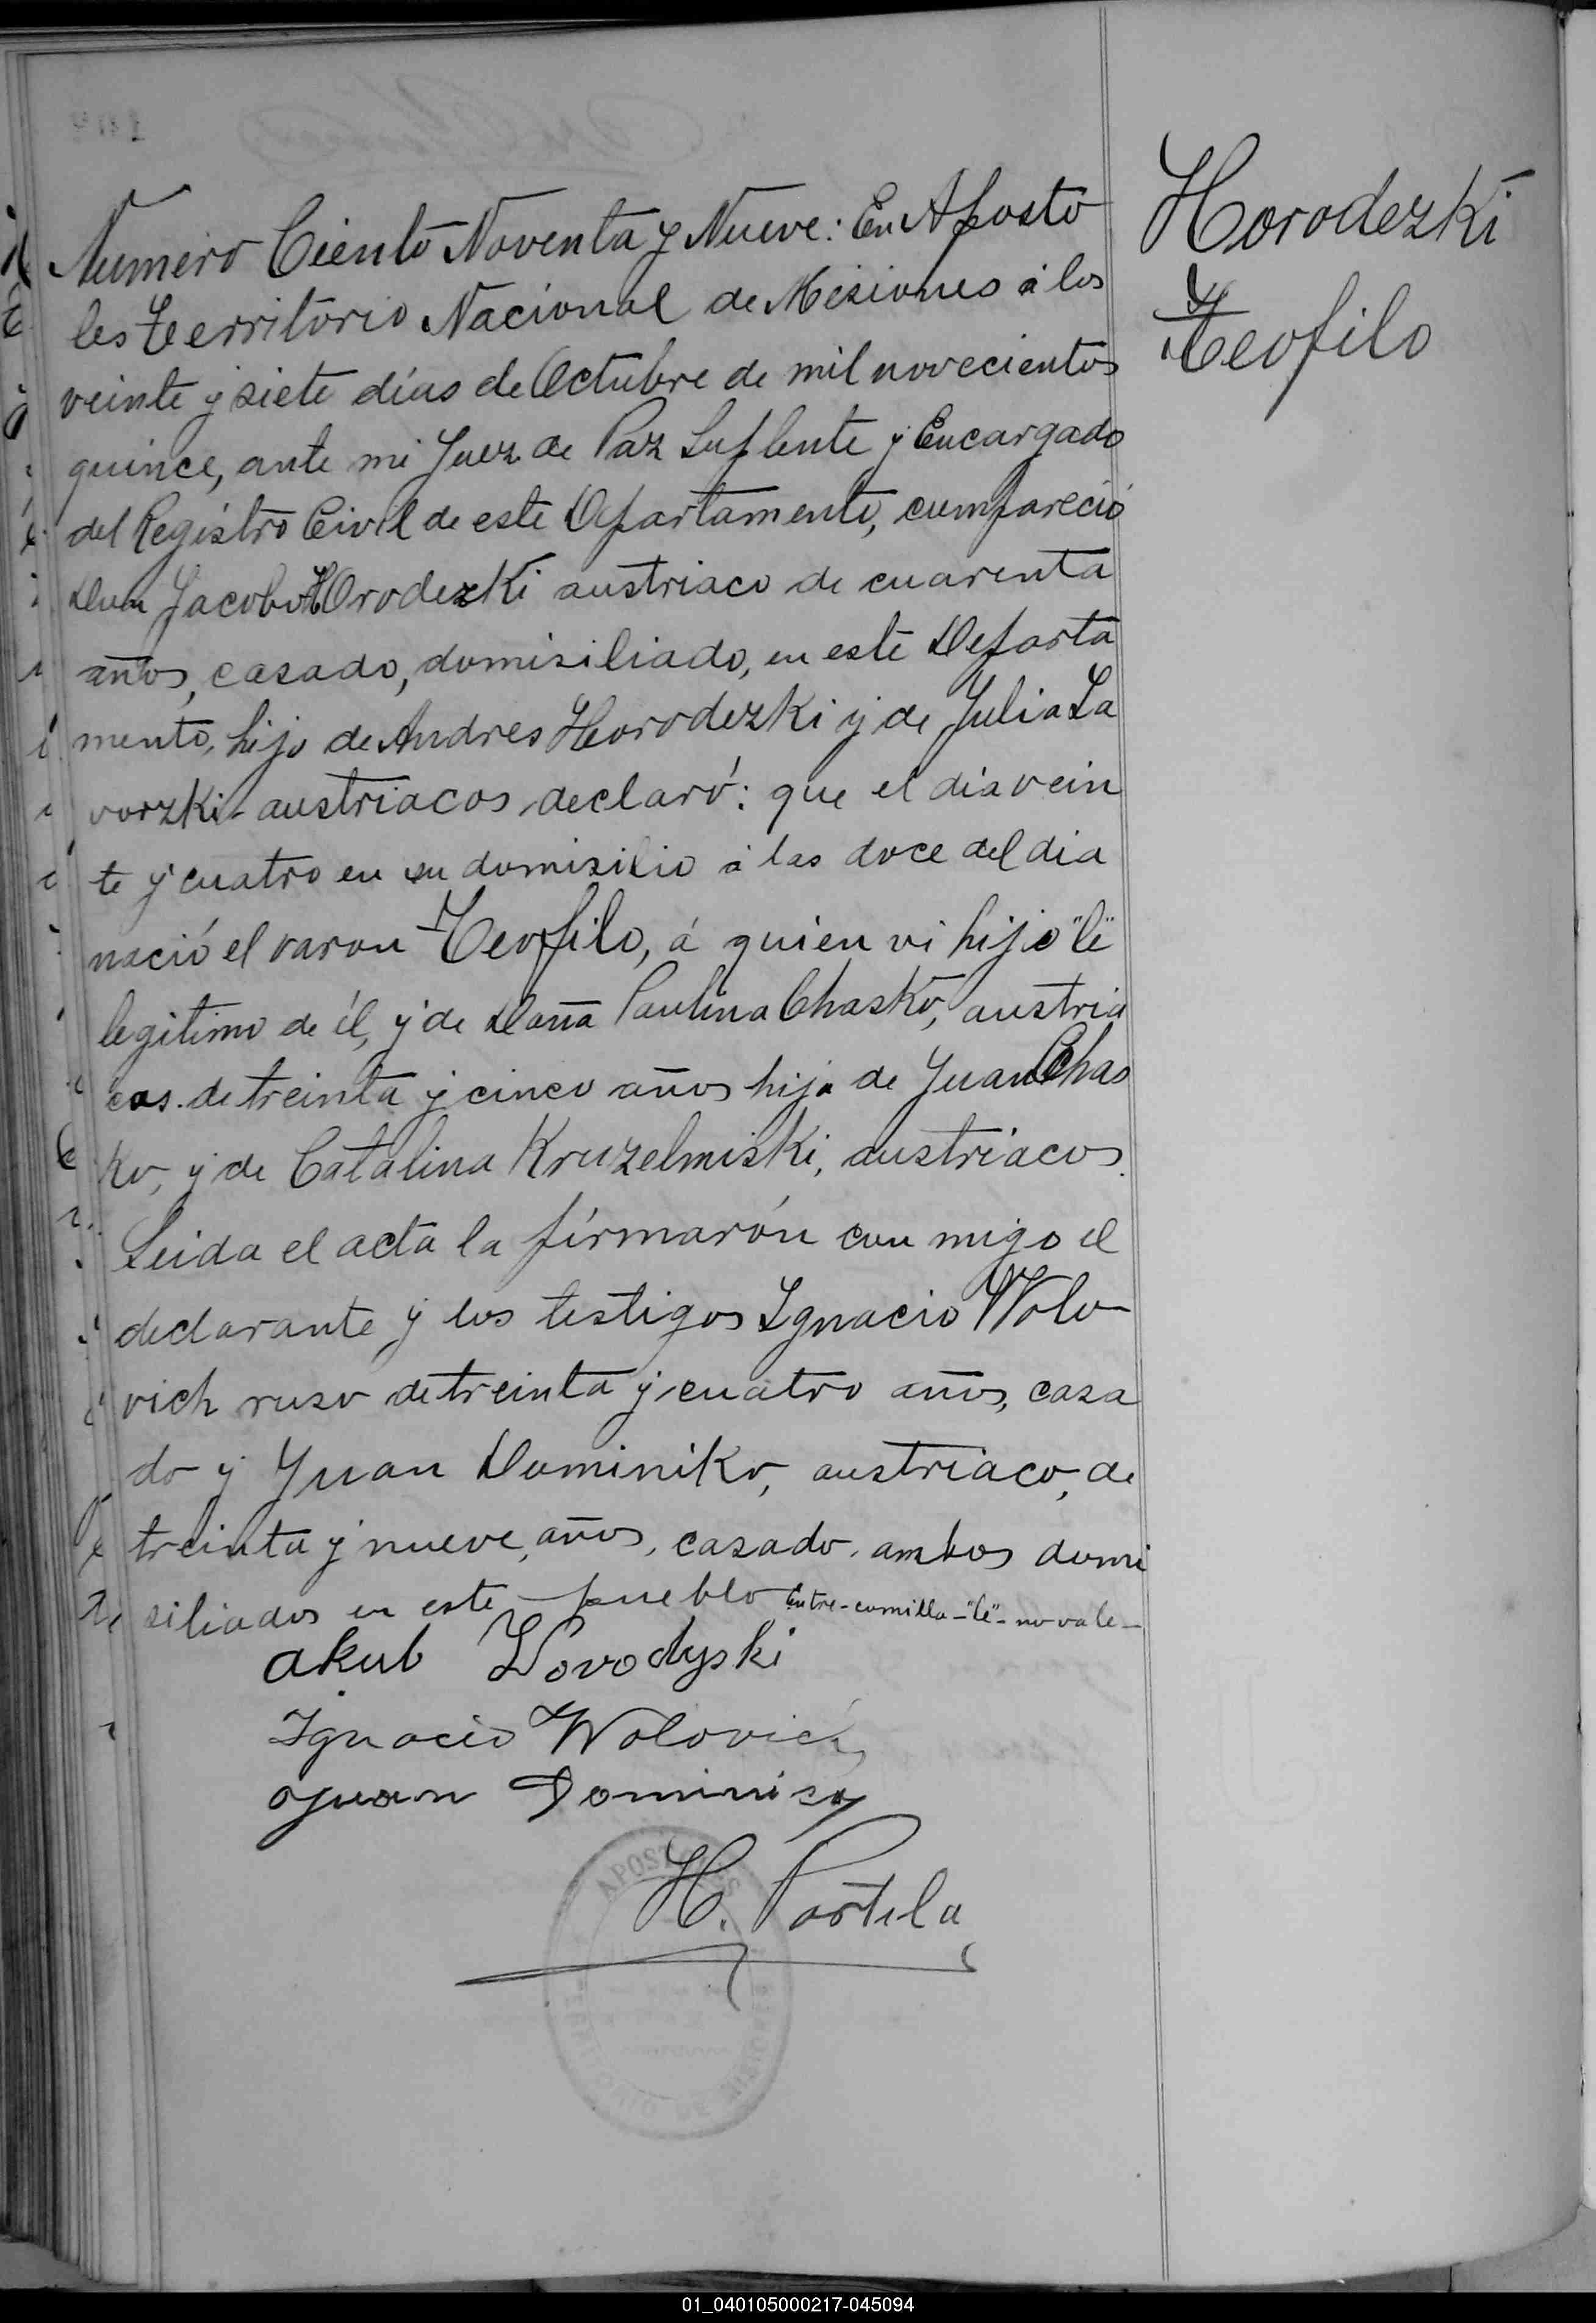 Horodezki
Teofilo
Numero Ciento Noventa y Nueve: En Aposto
les Territorio Nacional de Misiones á los
veinte y siete días de Octubre de mil novecientos
quince, ante mi Juez de Paz Suplente y Encargado
del Registro Civil de este Departamento, compareció
Don Jacobo Horodezki austriaco de cuarenta
años, casado, domisiliado, en este Departa
mento, hijo de Andres Horodezki y de Julia La
vorzki- austriacos, declaró: que el dia vein
te y cuatro en su domisilio á las doce del dia
nació el varon Teofilo, á quien vi hijo "lé"
legitimo de él, y de Doña Paulina Chasko, austria
cos. de treinta y cinco años hija de Juan Chas
ko, y de Catalina Kruzelmiski, austriacos.
Leida el acta la firmarón con migo el
declarante y los testigos Ignacio Wolo-
vich ruso de treinta y cuatro años, casa
do y Juan Dominiko, austriaco, de
treinta y nueve, años, casado, ambos domi
siliados en este pueblo Entre-comilla-"lé"-no vale-
akub Horodyski
Ignacio Wolovich
Juan Dominico
H. Portela
APOSTOLES
TERRITORIO DE MISIONES
01_040105000217-045094